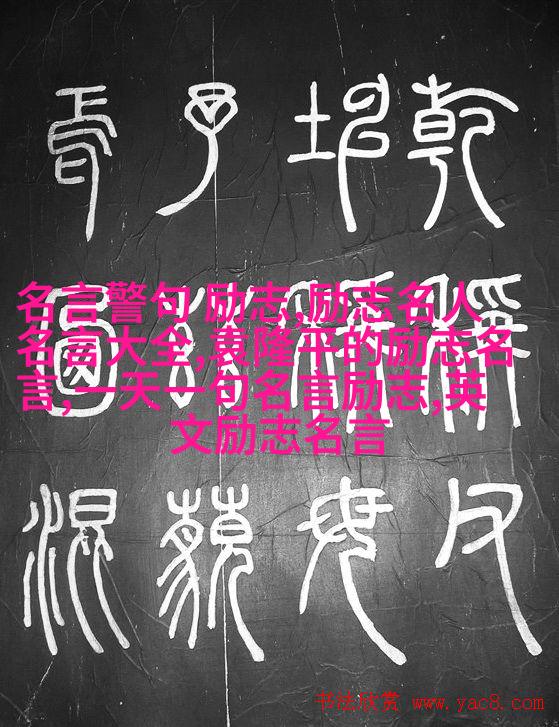 乾稱父
坤稱母
予茲藐
焉混
名言警句 励志,励志名人
名言大全,袁隆平的励志名
言,一天一句名言励志,英
文励志名言
书法欣赏 www.yac8.com